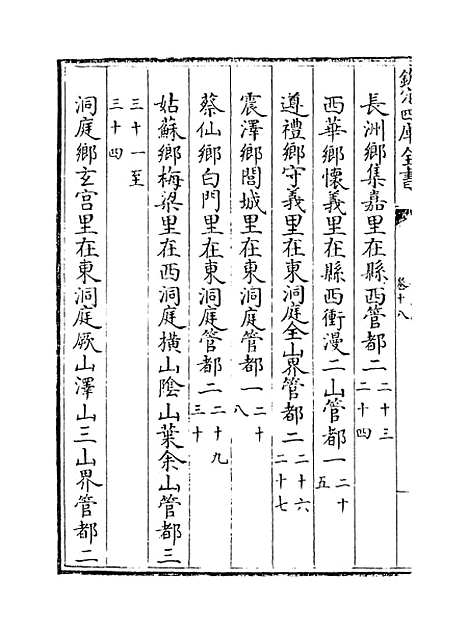 欽定四庫全書
卷十八
長洲鄉集嘉里在縣西管都二二十三
二十四
西華鄉懷義里在縣西衝漫二山管都一二十
五
遵禮鄉守義里在東洞庭全山界管都二二十六
二十七
震澤鄉閭城里在東洞庭管都一二十
八
蔡仙鄉白門里在東洞庭管都二二十九
三十
姑蘇鄉梅梁里在西洞庭橫山陰山葉余山管都三
三十一至
三十四
洞庭鄉玄宫里在東洞庭厥山澤山三山界管都二